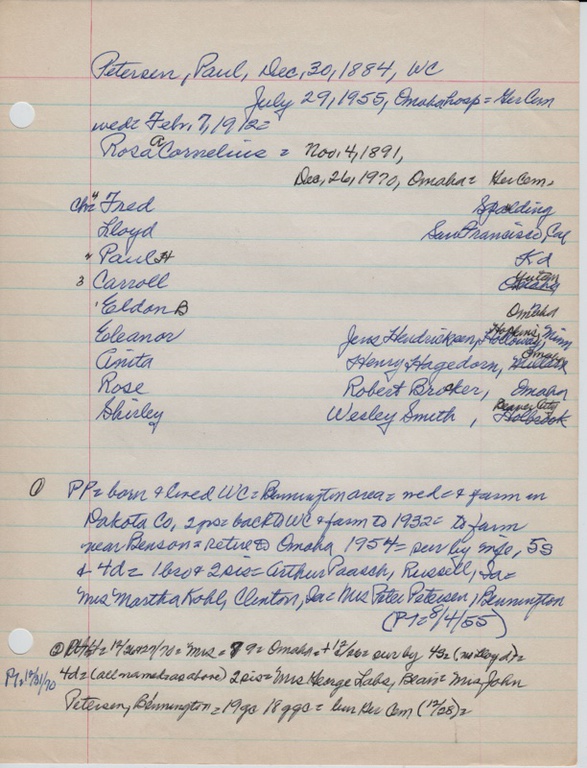 Petersen, Paul, Dec, 30, 1884, WC
July 29, 1955, Omaha hosp = Ger Cem
wed = Febr. 7, 1912 =
Rosa a Cornelius = Nov. 4, 1891,
Dec, 26, 1970, Omaha = Ger Cem,
ch = 4 Fred Spalding
Lloyd San Francisco, Cal
Paul H Kd
3 Carroll Yutan
1 Eldon B Omaha
Eleanor Jens Hendricksen, Hopkins, Minn
Anita Henry Hagedorn, Omaha
Rose Robert Brocker, Omaha
Shirley Wesley Smith, Beaver City Holbrook
① PP = born & lived WC = Bennington area = wed = & farm in
Dakota Co, 2 yrs = back to WC & farm to 1932 = to farm
near Benson = retired Omaha 1954 = sur by wife, 5s
& 4d = 1 bro & 2 sis = Arthur Paasch, Russell, Ia =
Mrs Martha Kohl, Clinton, Ia = Mrs Peter Petersen, Bennington
(PI = 8/4/55)
② = Mrs = 79 = Omaha = + 12/26 = sur by 4s = (no Lloyd) =
PI = 12/31/70 4d = (all named as above) 2 sis = Mrs George Labs, Blair = Mrs John
Petersen, Bennington = 19 gc 18 ggc = bur Ger Cem (12/28) =